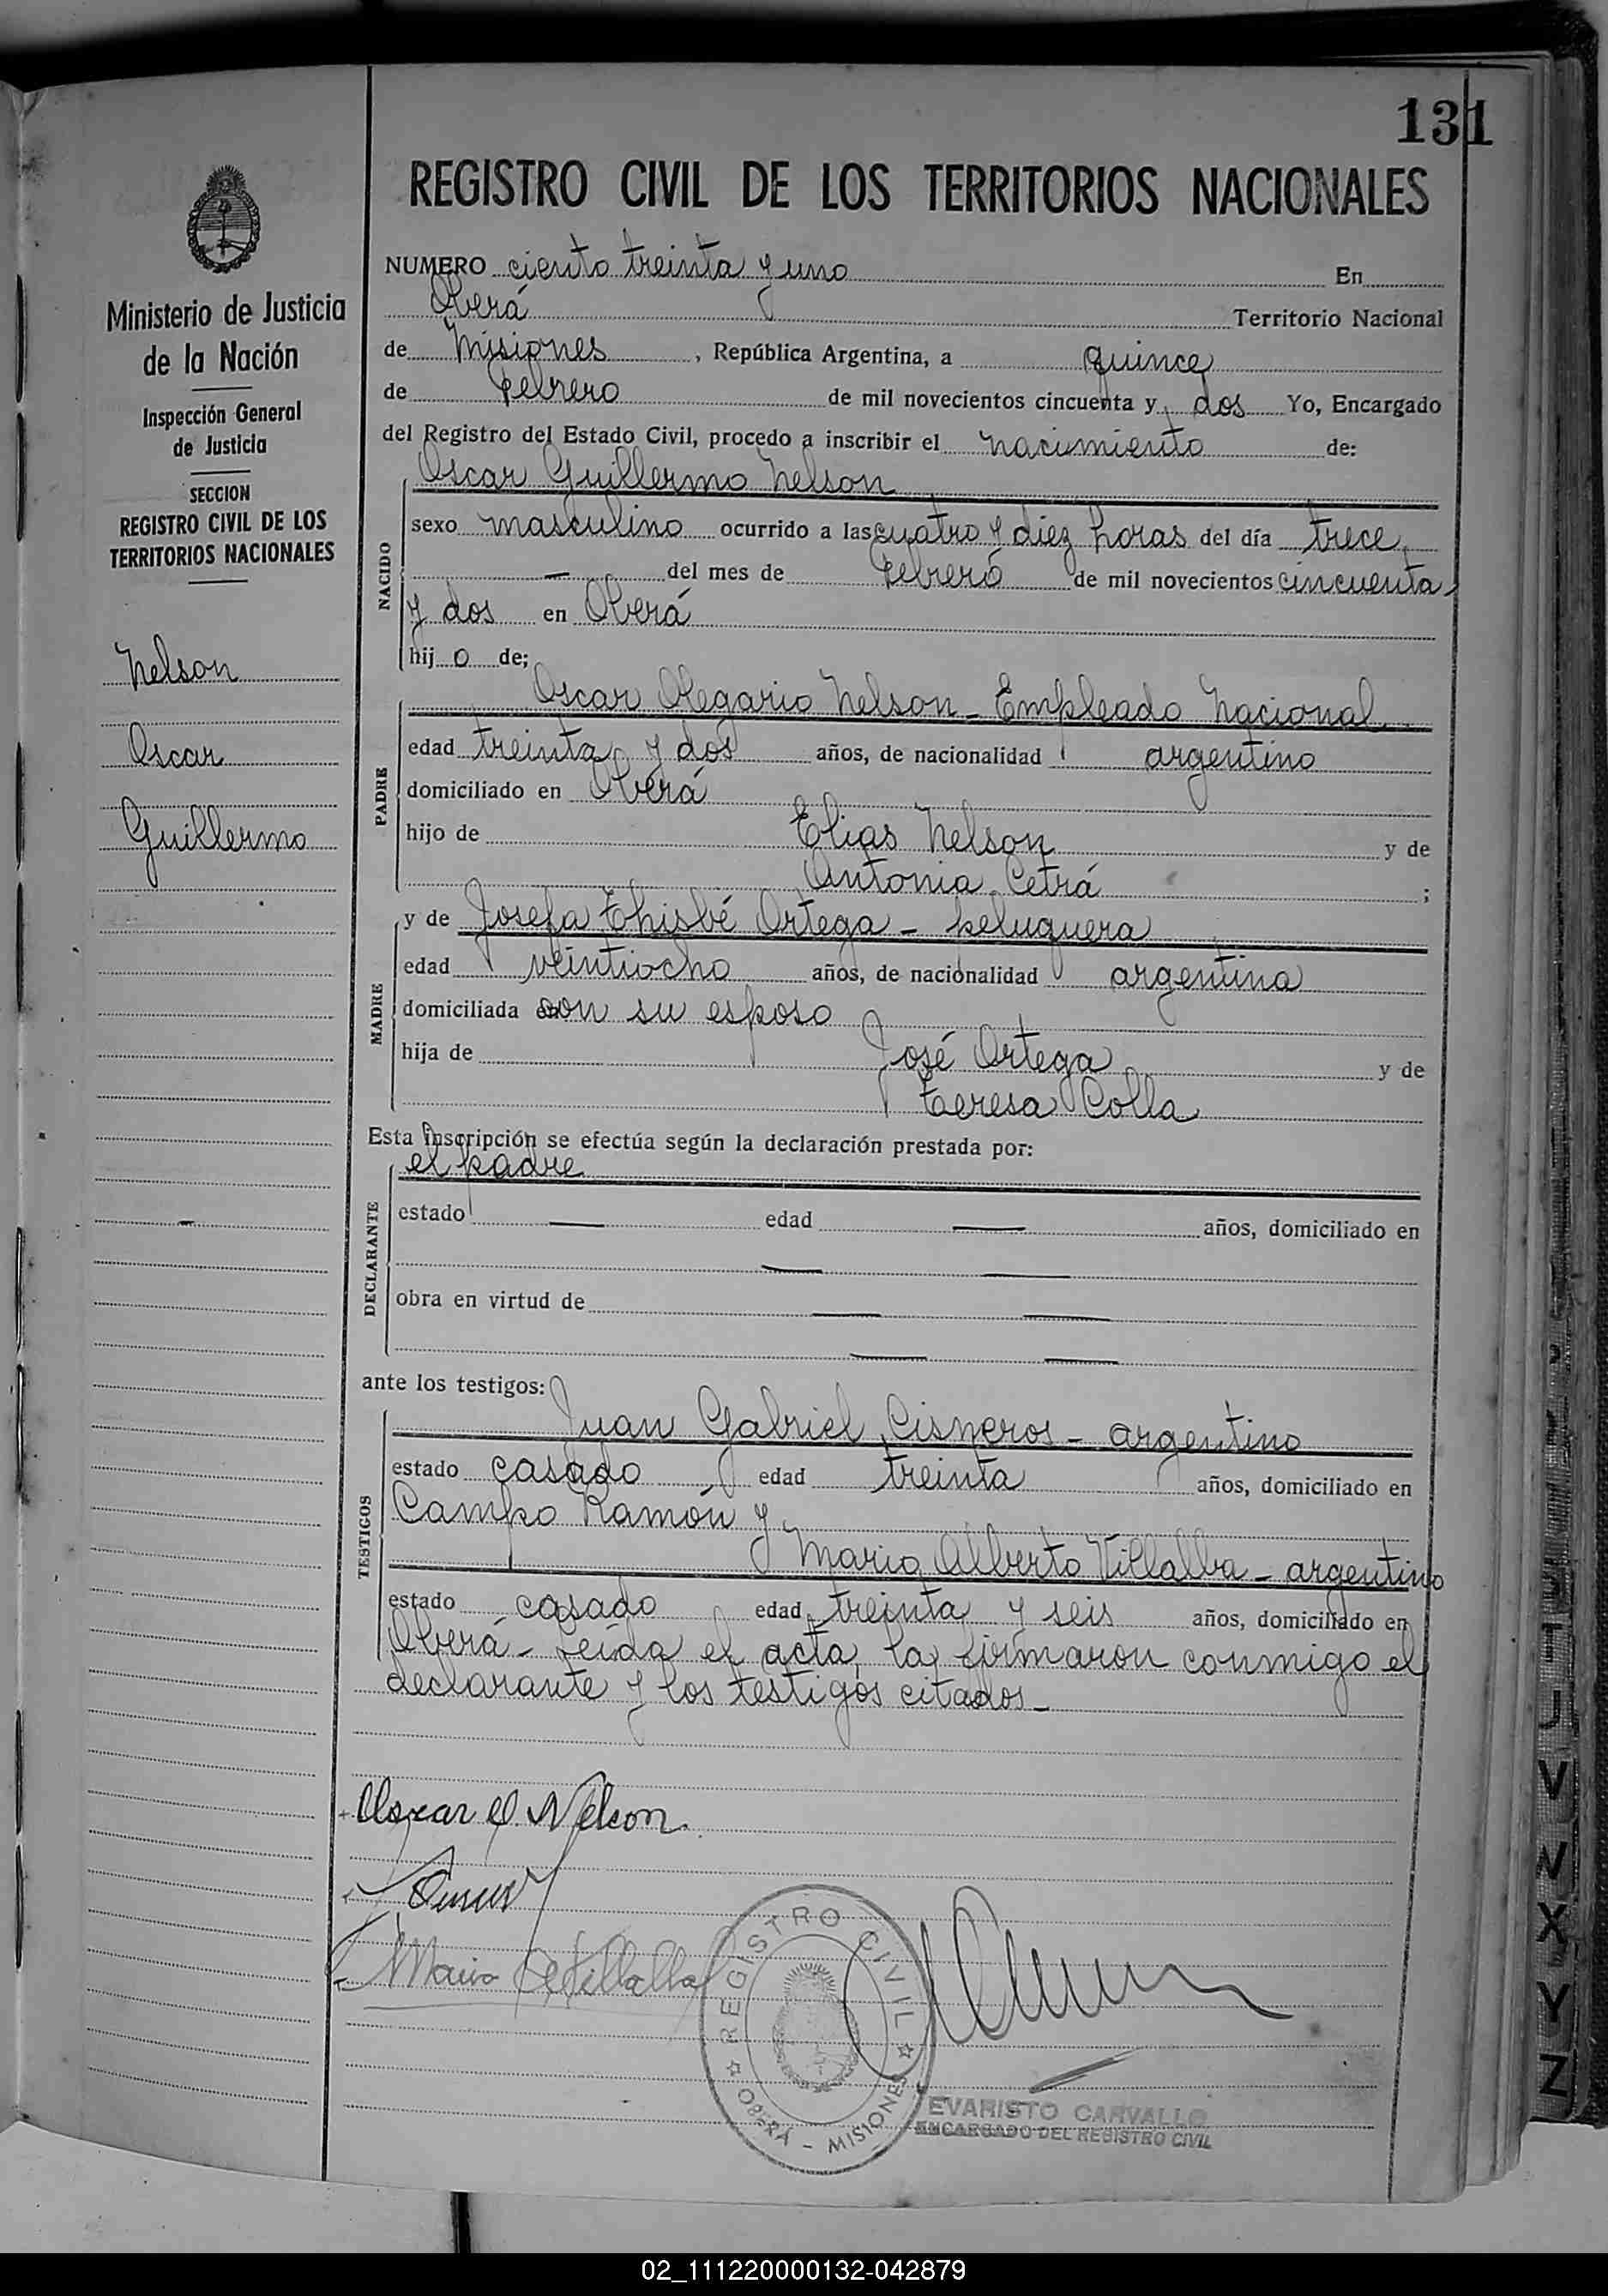 131
REGISTRO CIVIL DE LOS TERRITORIOS NACIONALES
Ministerio de Justicia
de la Nación
Inspección General
de Justicia
SECCION
REGISTRO CIVIL DE LOS
TERRITORIOS NACIONALES
Nelson
Oscar
Guillermo
NUMERO ciento treinta y uno En
Oberá Territorio Nacional
de Misiones, República Argentina, a quince
de febrero de mil novecientos cincuenta y dos Yo, Encargado
del Registro del Estado Civil, procedo a inscribir el nacimiento de:
Oscar Guillermo Nelson
NACIDO
sexo masculino ocurrido a las cuatro y diez horas del día trece
— del mes de febrero de mil novecientos cincuenta
y dos en Oberá
hij o de;
PADRE
Oscar Olegario Nelson - Empleado Nacional
edad treinta y dos años, de nacionalidad argentino
domiciliado en Oberá
hijo de Elias Nelson y de
Antonia Cetrá ;
MADRE
y de Josefa Thisbé Ortega - peluquera
edad veintiocho años, de nacionalidad argentina
domiciliada con su esposo
hija de José Ortega y de
Teresa Colla
Esta inscripción se efectúa según la declaración prestada por:
el padre
DECLARANTE
estado — edad — años, domiciliado en
— —
obra en virtud de — —
— —
ante los testigos:
TESTIGOS
Juan Gabriel Cisneros - argentino
estado casado edad treinta años, domiciliado en
Campo Ramón y
Mario Alberto Villalba - argentino
estado casado edad treinta y seis años, domiciliado en
Oberá - Leída el acta, la firmaron conmigo el
declarante y los testigos citados -
Oscar O. Nelson.
Mario A. Villalba
REGISTRO CIVIL
OBERÁ - MISIONES
EVARISTO CARVALLO
ENCARGADO DEL REGISTRO CIVIL
T
U
V
W
X
Y
Z
02_111220000132-042879